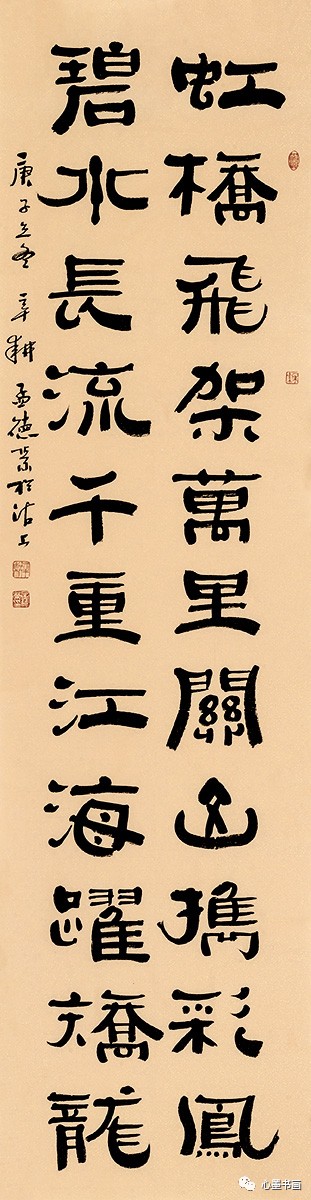 虹橋飛架萬里關山携彩鳳
碧水長流千重江海躍矯龍
庚子立冬 辛耕 孟德於沽上
心墨书画